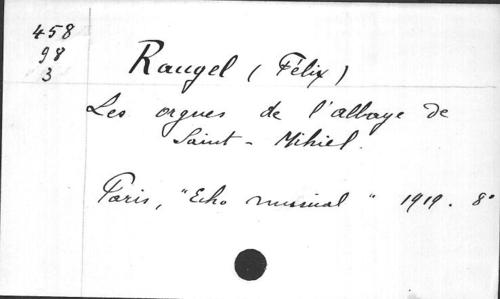 458
98
3
Raugel (Félix)
Les orgues de l'abbaye de
Saint-Mihiel.
Paris, "Echo musical" 1919. 8°